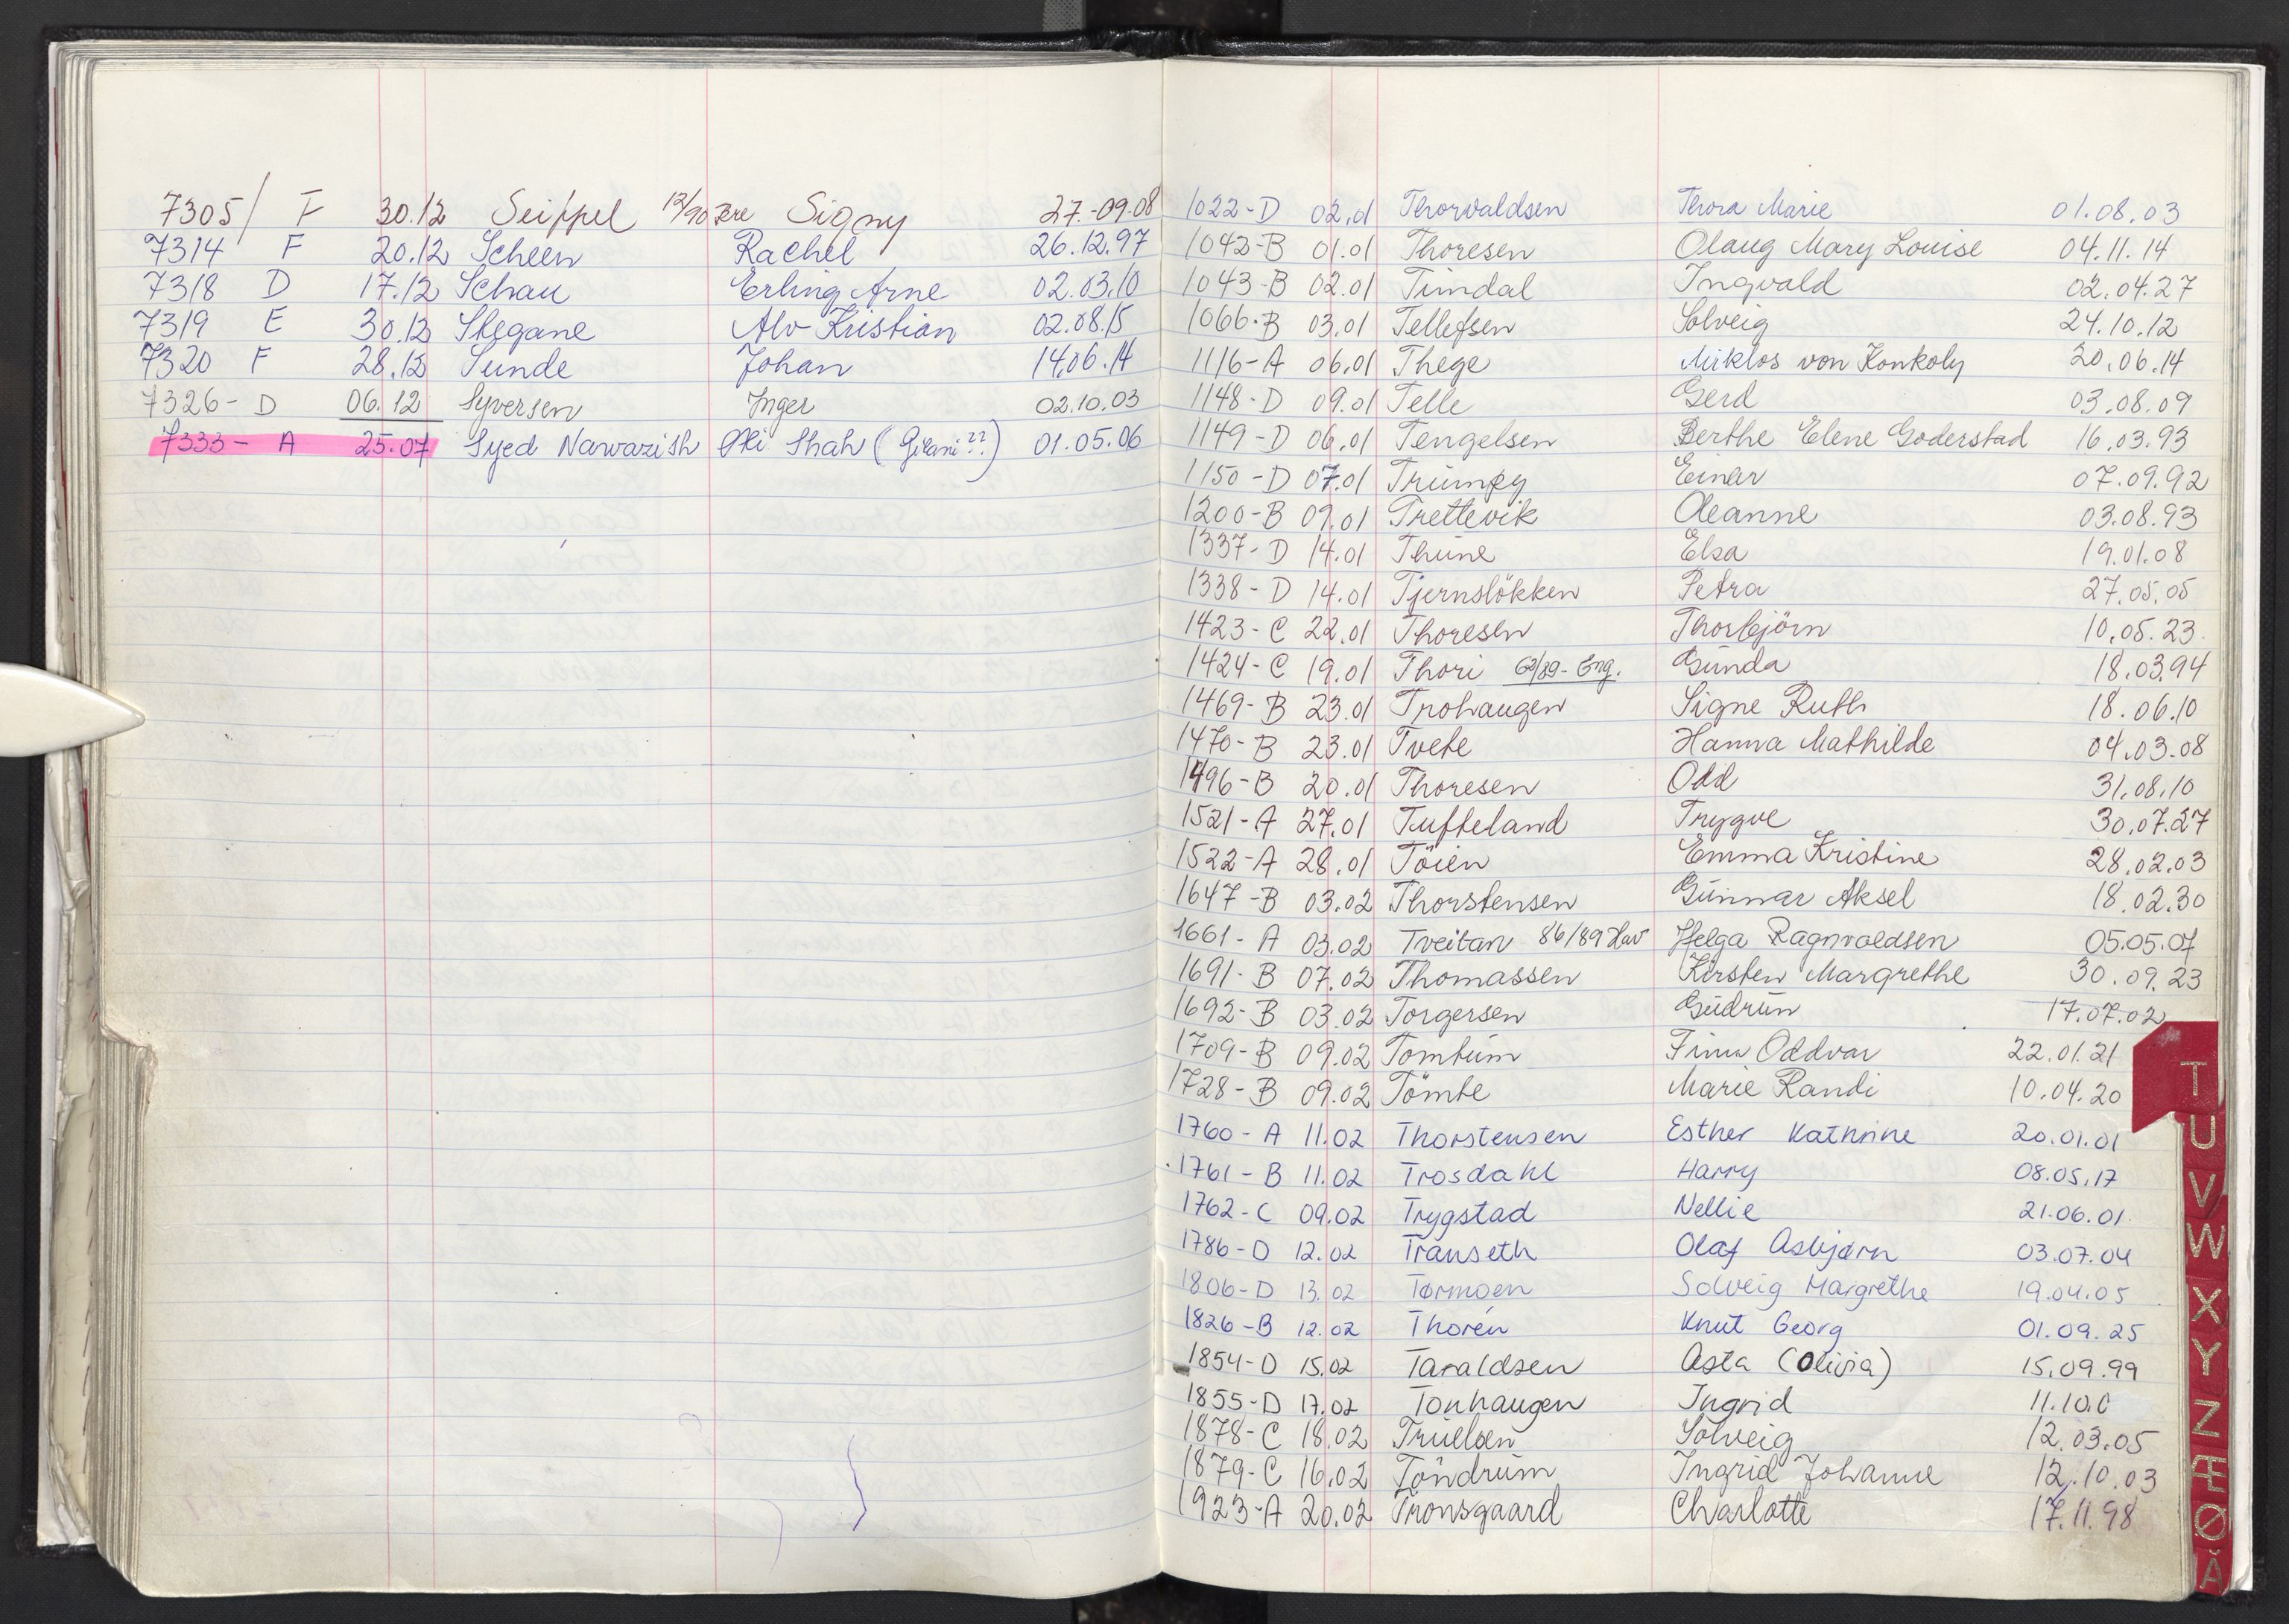 7305/ F 30.12 Seippel 12/90 Jere Signy 27.-09.08
7314 F 20.12 Scheen Rachel 26.12.97
7318 D 17.12 Schau Erling Arne 02.03.10
7319 E 30.12 Stegane Alv Kristian 02.08.15
7320 F 28.12 Sunde Johan 14.06.14
7326- D 06.12 Syversen Inger 02.10.03
7333- A 25.07 Syed Nawazish Ali Shah (Gilani??) 01.05.06
1022-D 02.01 Thorvaldsen Thora Marie 01.08.03
1042-B 01.01 Thoresen Olaug Mary Louise 04.11.14
1043-B 02.01 Timdal Ingvald 02.04.27
1066-B 03.01 Tellefsen Solveig 24.10.12
1116-A 06.01 Thege Miklos von Konkoly 20.06.14
1148-D 09.01 Telle Gerd 03.08.09
1149-D 06.01 Tengelsen Berthe Elene Goderstad 16.03.93
1150-D 07.01 Trümpy Einar 07.09.92
1200-B 09.01 Trettevik Oleanne 03.08.93
1337-D 14.01 Thune Elsa 19.01.08
1338-D 14.01 Tjernslökken Petra 27.05.05
1423-C 22.01 Thoresen Thorbjörn 10.05.23
1424-C 19.01 Thori 62/89-Eng. Gunda 18.03.94
1469-B 23.01 Trohaugen Signe Ruth 18.06.10
1470-B 23.01 Tvete Hanna Mathilde 04.03.08
1496-B 20.01 Thoresen Odd 31.08.10
1521-A 27.01 Tufteland Trygve 30.07.27
1522-A 28.01 Töien Emma Kristine 28.02.03
1647-B 03.02 Thorstensen Gunnar Aksel 18.02.30
1661-A 03.02 Tveitan 86/89 Hav Helga Ragnvaldsen 05.05.07
1691-B 07.02 Thomassen Kirsten Margrethe 30.09.23
1692-B 03.02 Torgersen Gudrun 17.07.02
1709-B 09.02 Tomtum Finn Oddvar 22.01.21
1728-B 09.02 Tömte Marie Randi 10.04.20
1760-A 11.02 Thorstensen Esther Kathrine 20.01.01
1761-B 11.02 Trosdahl Harry 08.05.17
1762-C 09.02 Trygstad Nellie 21.06.01
1786-D 12.02 Transeth Olaf Asbjørn 03.07.04
1806-D 13.02 Tørmoen Solveig Margrethe 19.04.05
1826-B 12.02 Thorén Knut Georg 01.09.25
1854-D 15.02 Taraldsen Asta (Olivia) 15.09.99
1855-D 17.02 Tonhaugen Ingrid 11.10.0
1878-C 18.02 Truelsen Solveig 12.03.05
1879-C 16.02 Töndrum Ingrid Johanne 12.10.03
1923-A 20.02 Tronsgaard Charlotte 17.11.98
T
U
V
W
X
Y
Z
Æ
Ø
Å